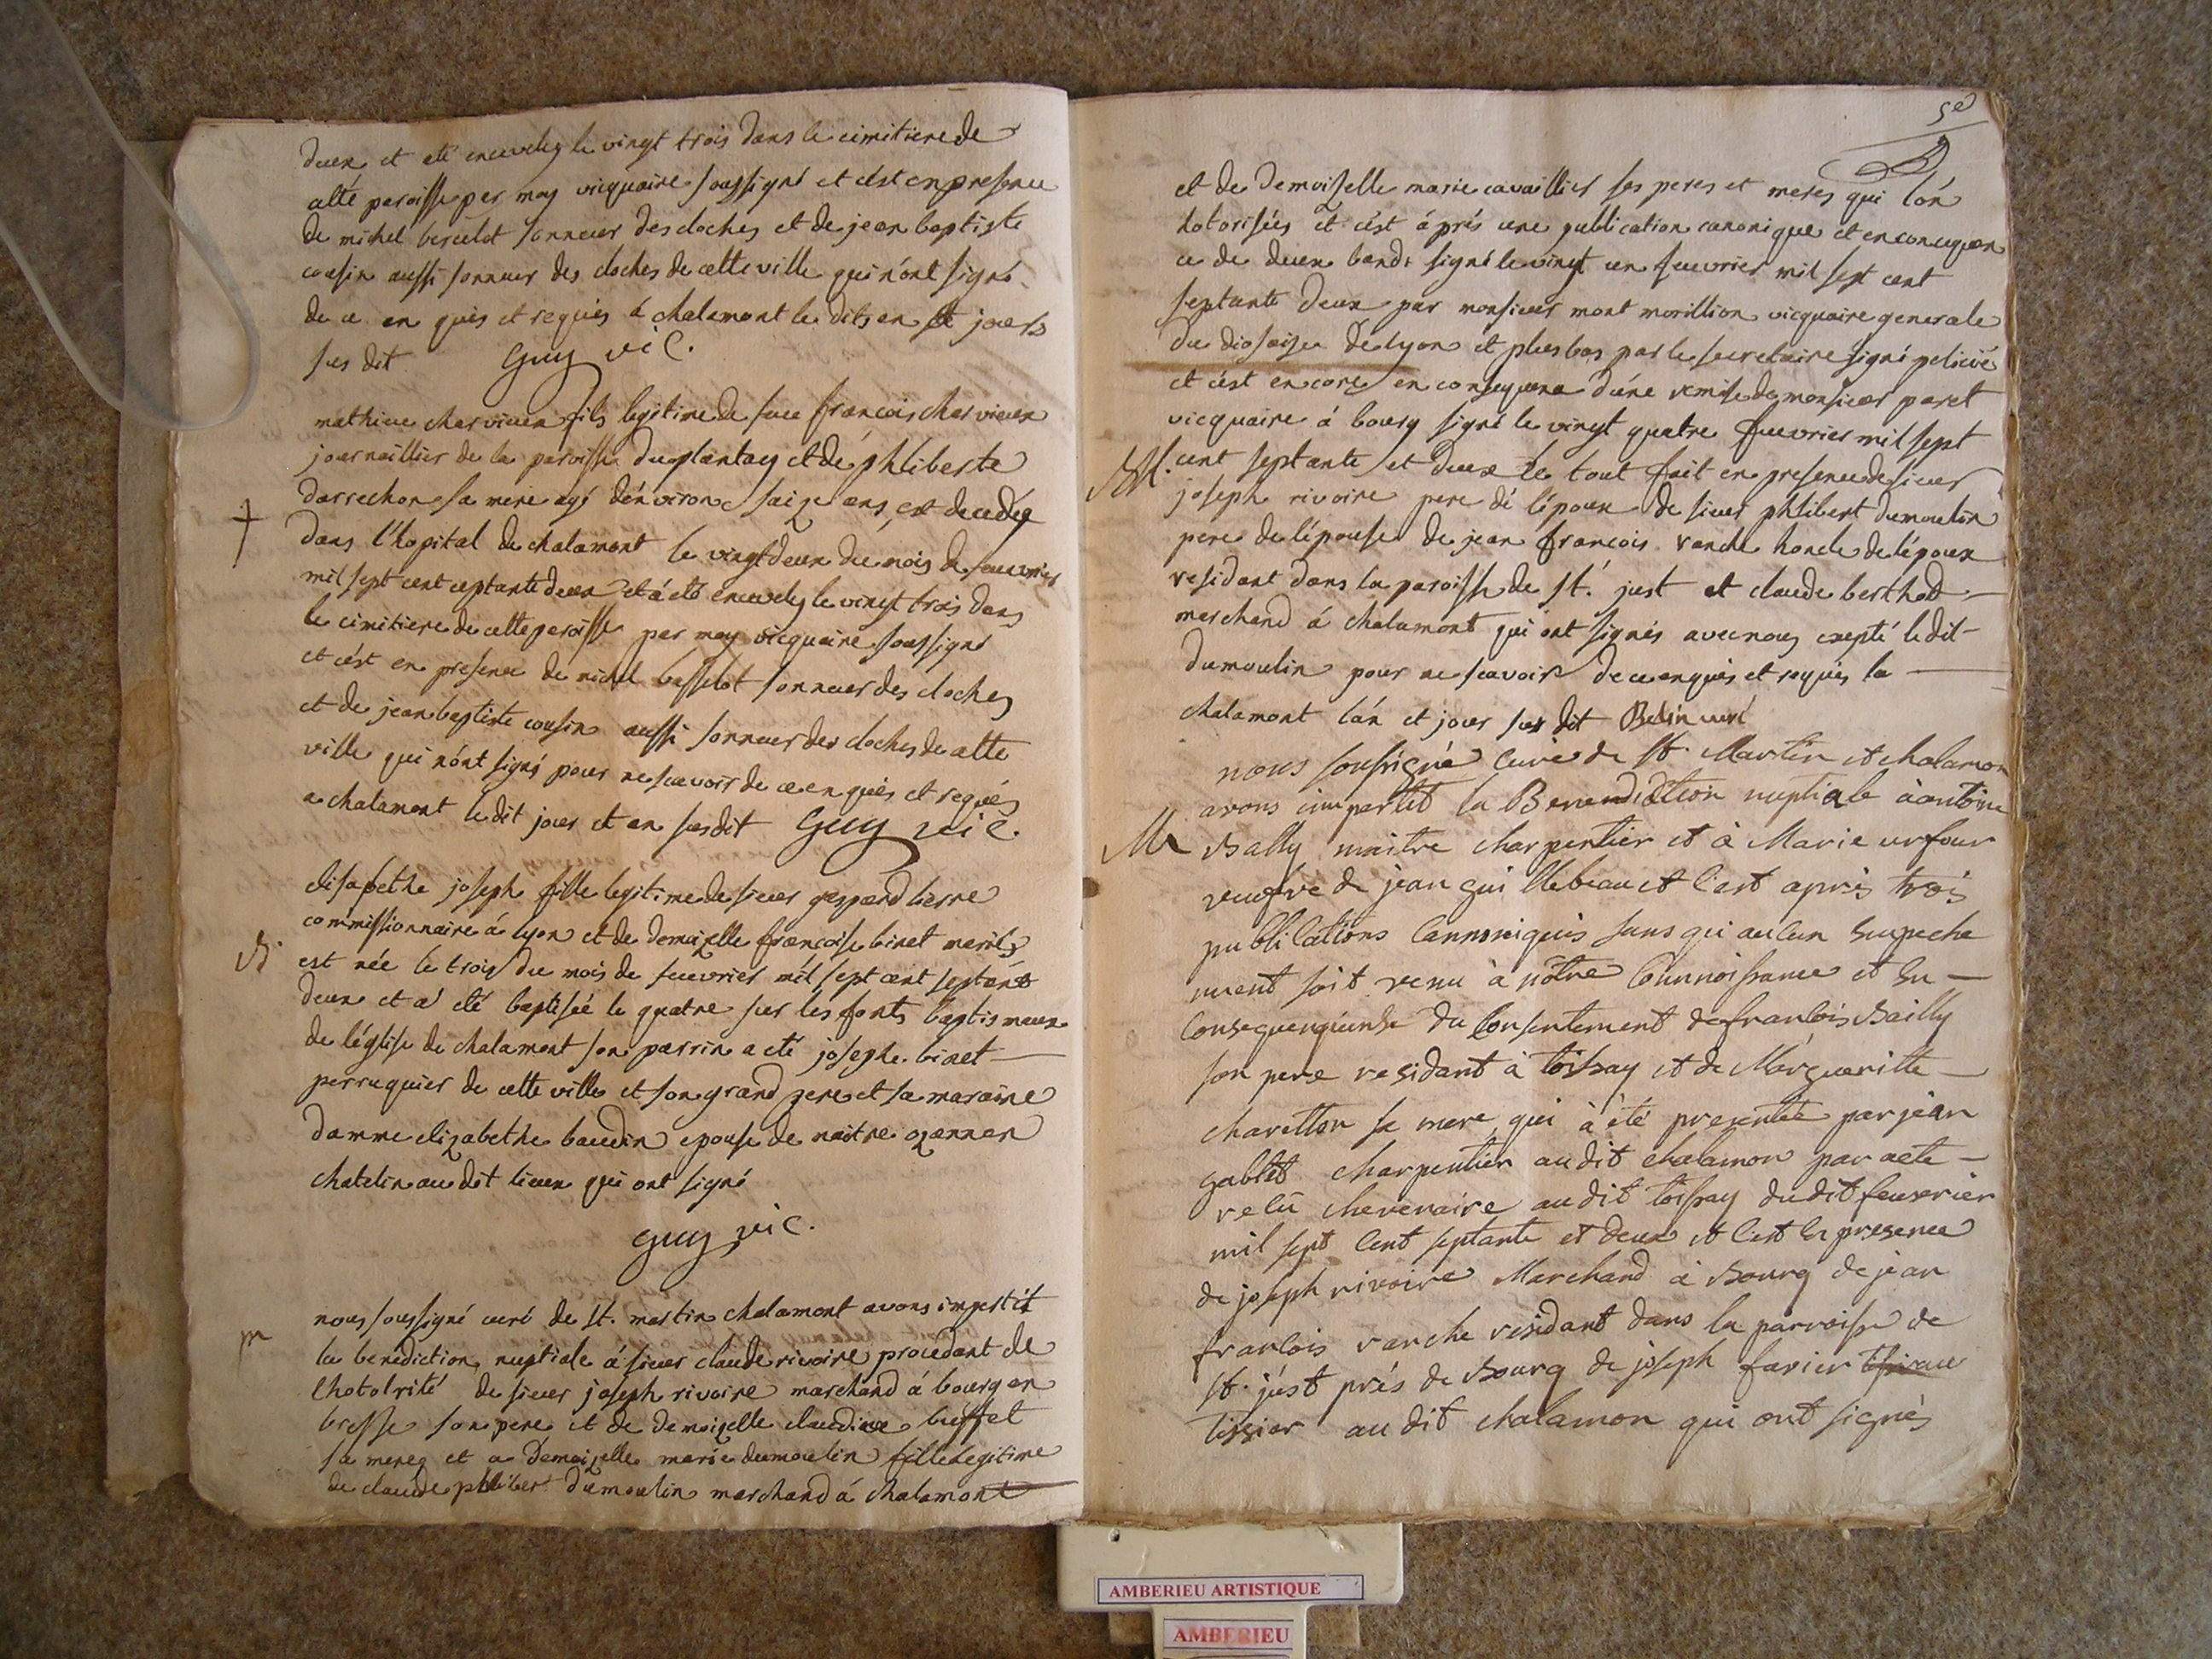 deux et eté encevelÿ le vingt trois dans le cimitiere de
cette paroisse per moy vicquaire soussigné et cést en presence
de michel bercelot sonneur des cloches et de jean baptiste
cousin aussi sonneur des cloches de cette ville qui n'ónt signé
de ce en quis et requis á chalamont le dits en et jours
sus dit guy vic.
mathieu charvieux fils legitime de feu francois charvieux
journaillier de la paroisse du plantay et dé phliberte
darrechon sa mere agé dénviron saize ans est decedéz
dans l'hopital de chalamont le vingt deux du mois de feuvrier
mil sept cent ceptante deux et á eté encevely le vingt trois dans
le cimitiere de cette paroisse per moy vicquaire soussigné
et cést en presence de michel bersselot sonneur des cloches
et de jean baptiste cousin aussi sonneur des cloches de cette
ville qui nónt signé pour ne scavoir de ce en quis et requis
a chalamont le dit jour et an susdit guy vic.
elisabethe joseph fille legitime de sieur gaspard
commissionnaire á lyon et de demaizelle francoise binet mariés
B.
est née le trois du mois de feuvrier mil sept cent septante
deux et a' eté baptiseé le quatre sur les fonts baptismaux
de léglise de chalamont son parrin a eté josephe binet
perruquier de cette ville et son grand pere et sa maraine
damme elizabethe baudin epouse de maitre ozannan
chatelin au dit lieux qui ont signé
guy vic.
nous soussigné curé de st. martin chalamont avons impertit
m
la benediction nuptiale á sieur claude rivoire procedant de
lhotolrité de sieur joseph rivoire marchand á bourg en
bresse son pere et de demoizelle claudine buffet
sa merez et a Demaizelle marie dumoulin fille legitime
de claude phliber dumoulin marchand á chalamont
5e
et de demoizelle marie cavaillier ses peres et meres qui lón
hotorisées et cést áprés une publication canonique et en concequen
ce de deux bands signé le vingt un feuvrier mil sept cent
septante deux par monsieur mont morillion vicquaire generale
du diosaise de lyon et plus bas par le secretaire signé
et cést encore en consequence d'úne remise de monsieur paret
vicquaire á bourg signé le vingt quatre feuvrier mil sept
M.
cent septante et deux le tout fait en presence de sieur
joseph rivoire pere dé lépoux de sieur phlibert dumoulin
pere de lépouse de jean francois varche honcle de lépoux
residant dans la paroisse de st. just et claude berthod
marchand á chalamont qui ont signés avec nous exepté le dit
dumoulin pour ne scavoir de ce enquis et requis la
chalamont lán et jour sus dit Belin curé
nous soussigné curé de st. Martin et chalamon
avons impertit la Benendidction nuptiale à antoine
M
Bally maitre charpentier et à Marie urfour
veufve de jean gui et c'est apris trois
publications cannoniquis sans qui aucun Enpeche
ment soit venu à nôtre Connoissance et En
du Consentement de francois Bailly
son pere residant à toissay et de Margueritte
charetton sa mere qui à été presentée par jean
gablet charpentier au dit chalamon par acte
relû chevenaire au dit toissay du dit feuverier
mil sept Cent septante et deux et c'est En presence
de joseph rivoire Marchand à Bourg de jean
francois varche résidant dans la parroisse de
st. júst prés de Bourg de joseph favier
tissier au dit chalamon qui ont signés
AMBERIEU ARTISTIQUE
AMBERIEU